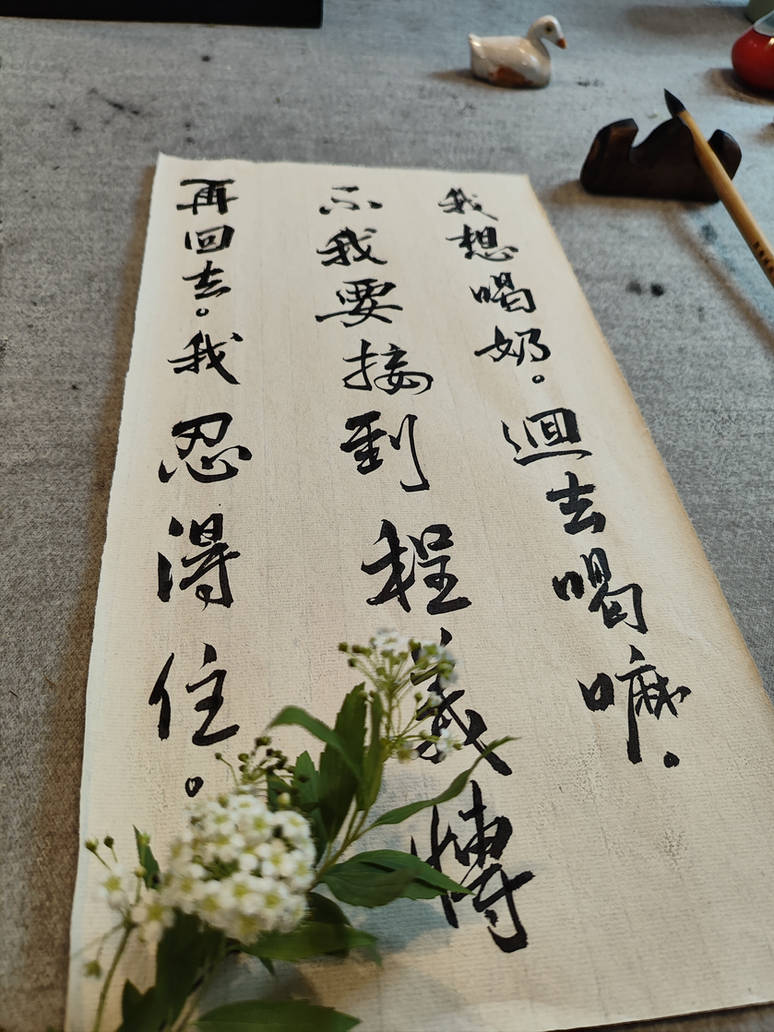 我想喝奶。迴去喝嘛。
不我要接到程義傅
再回去。我忍得住。